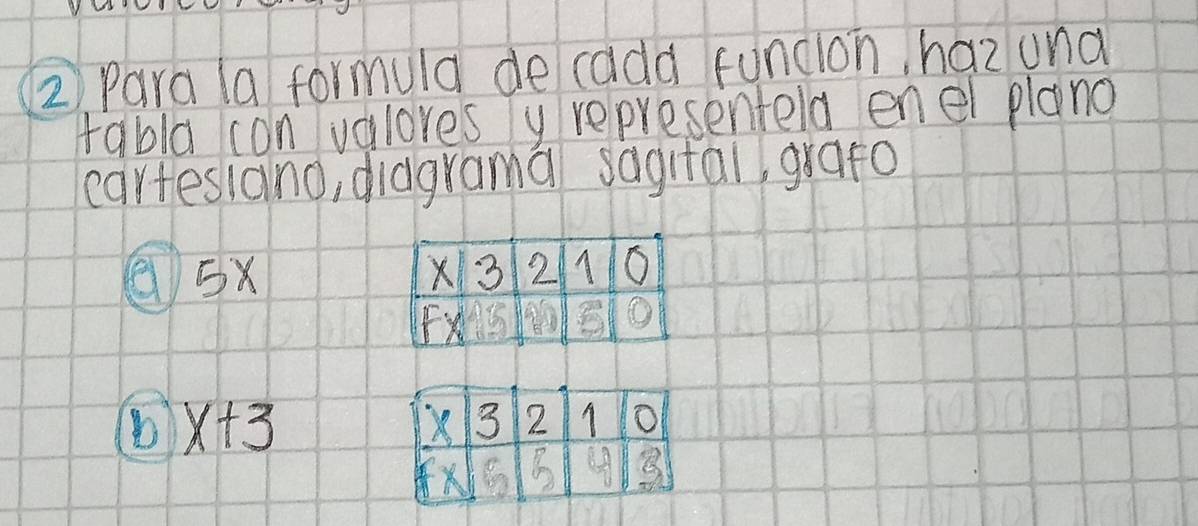 2 Para la formula de cada funcion, haz una
tabla con valores y representela en el plano
cartesiano, diagrama sagital, grafo
a 5x
x 3 2 1 0
Fx 15 10 5 0
b x+3
x 3 2 1 0
fx 6 5 4 3